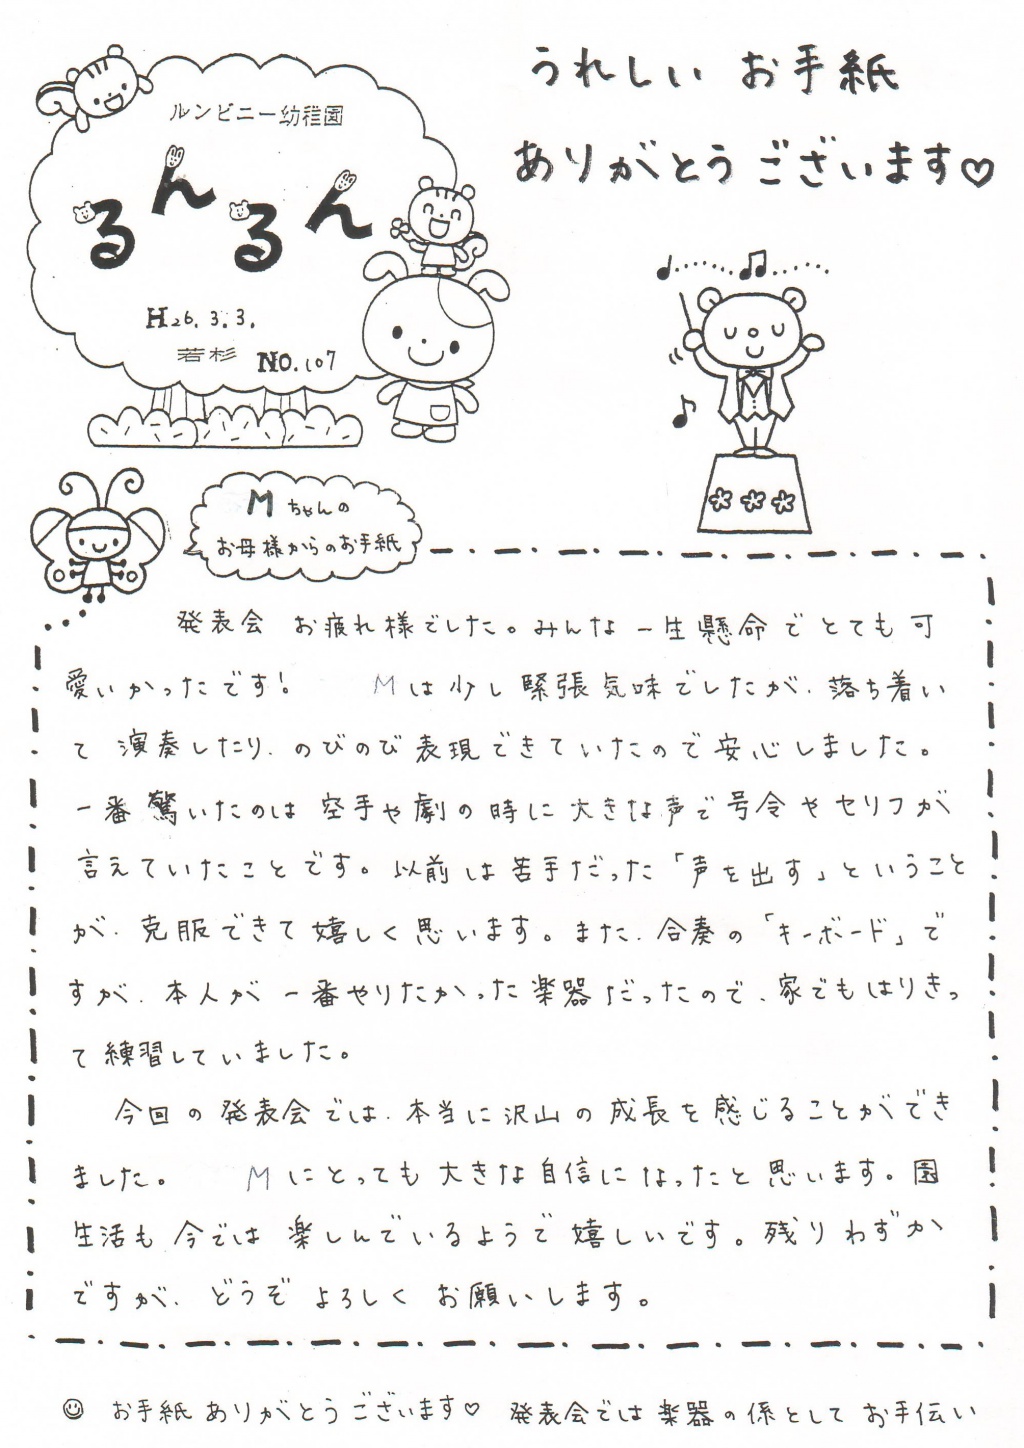 うれしい お手紙
ありがとう ございます♡
ルンビニー幼稚園
るんるん
H26.3.3.
若杉 NO.107
Mちゃんの
お母様からのお手紙
発表会 お疲れ様でした。みんな一生懸命でとても可
愛いかったです! Mは少し緊張気味でしたが、落ち着い
て演奏したり、のびのび表現できていたので安心しました。
一番驚いたのは空手や劇の時に大きな声で号令やセリフが
言えていたことです。以前は苦手だった「声を出す」ということ
が、克服できて嬉しく思います。また、合奏の「キーボード」で
すが、本人が一番やりたかった楽器だったので、家でもはりきっ
て練習していました。
今回の発表会では、本当に沢山の成長を感じることができ
ました。 Mにとっても大きな自信になったと思います。園
生活も今では楽しんでいるようで嬉しいです。残りわずか
ですが、どうぞよろしくお願いします。
お手紙ありがとうございます♡ 発表会では楽器の係としてお手伝い